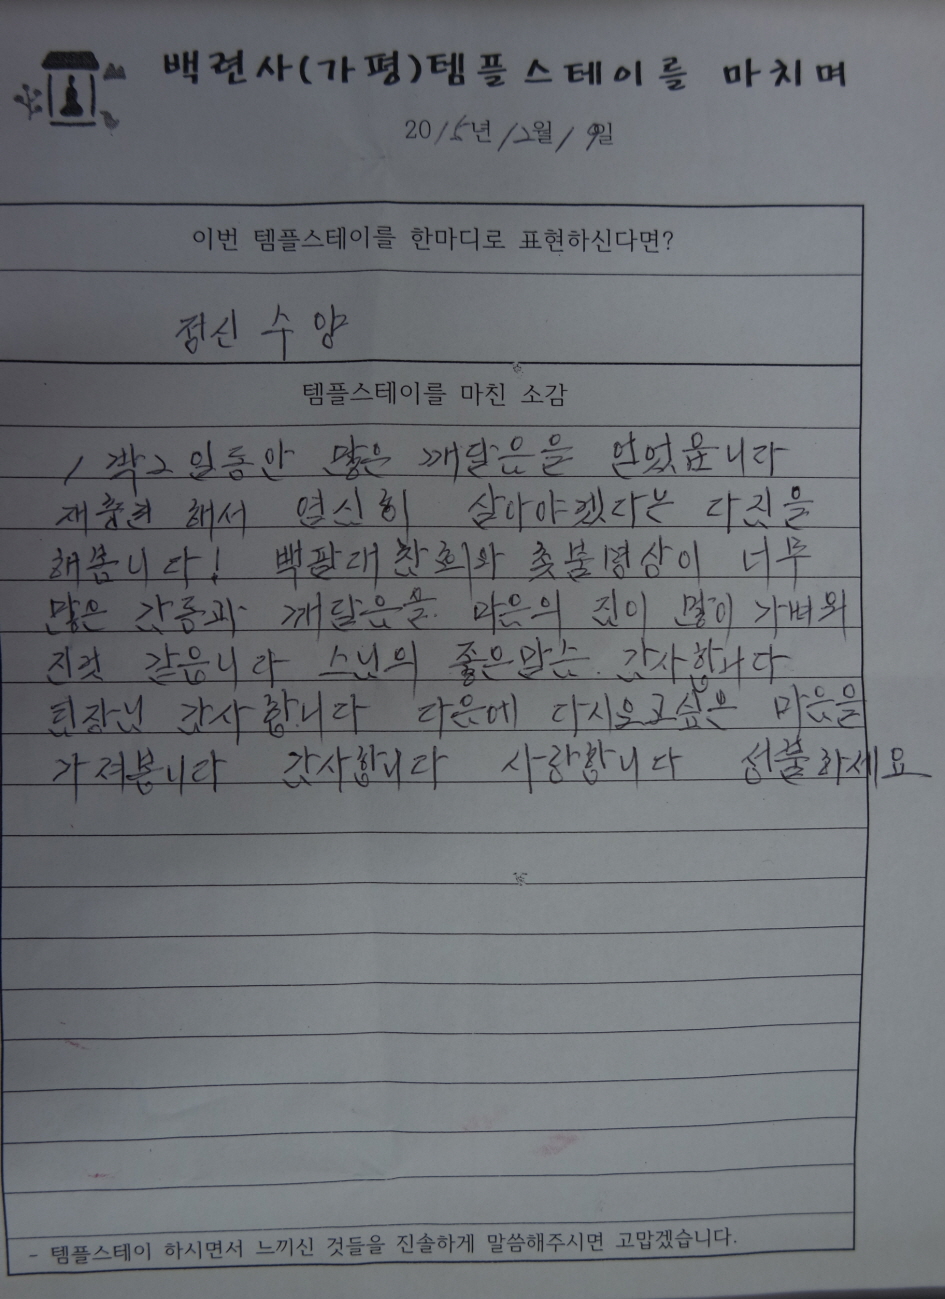 백련사(가평)템플스테이를 마치며
2015년 12월 19일
이번 템플스테이를 한마디로 표현하신다면?
정신 수양
템플스테이를 마친 소감
1박2일동안 많은 깨달음을 얻었읍니다
재충전 해서 열심히 살아야겠다는 다짐을
해봅니다! 백팔대참회와 촛불명상이 너무
많은 감동과 깨달음을. 마음의 짐이 많이 가벼워
진것 같읍니다 스님의 좋은말씀. 감사합니다
팀장님 감사합니다 다음에 다시오고싶은 마음을
가져봅니다 감사합니다 사랑합니다 성불하세요
- 템플스테이 하시면서 느끼신 것들을 진솔하게 말씀해주시면 고맙겠습니다.